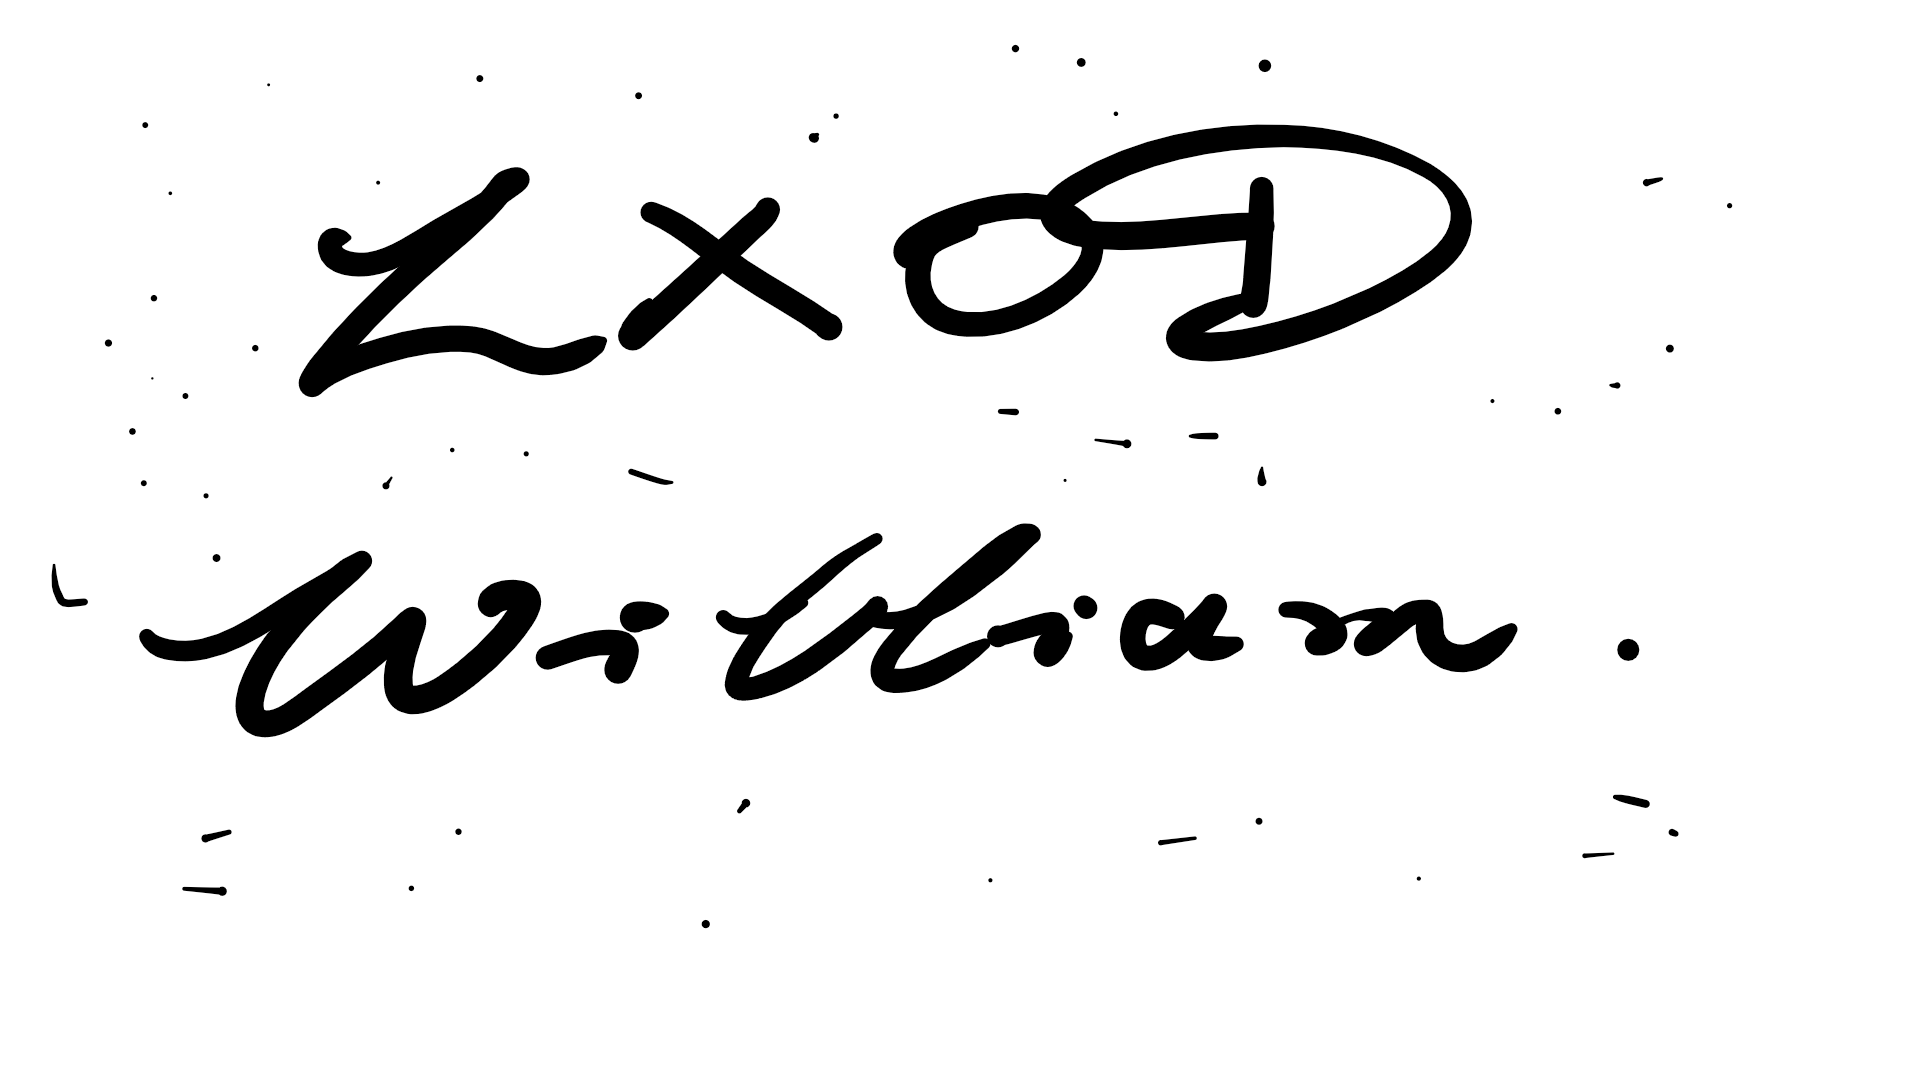 LXOD
William.